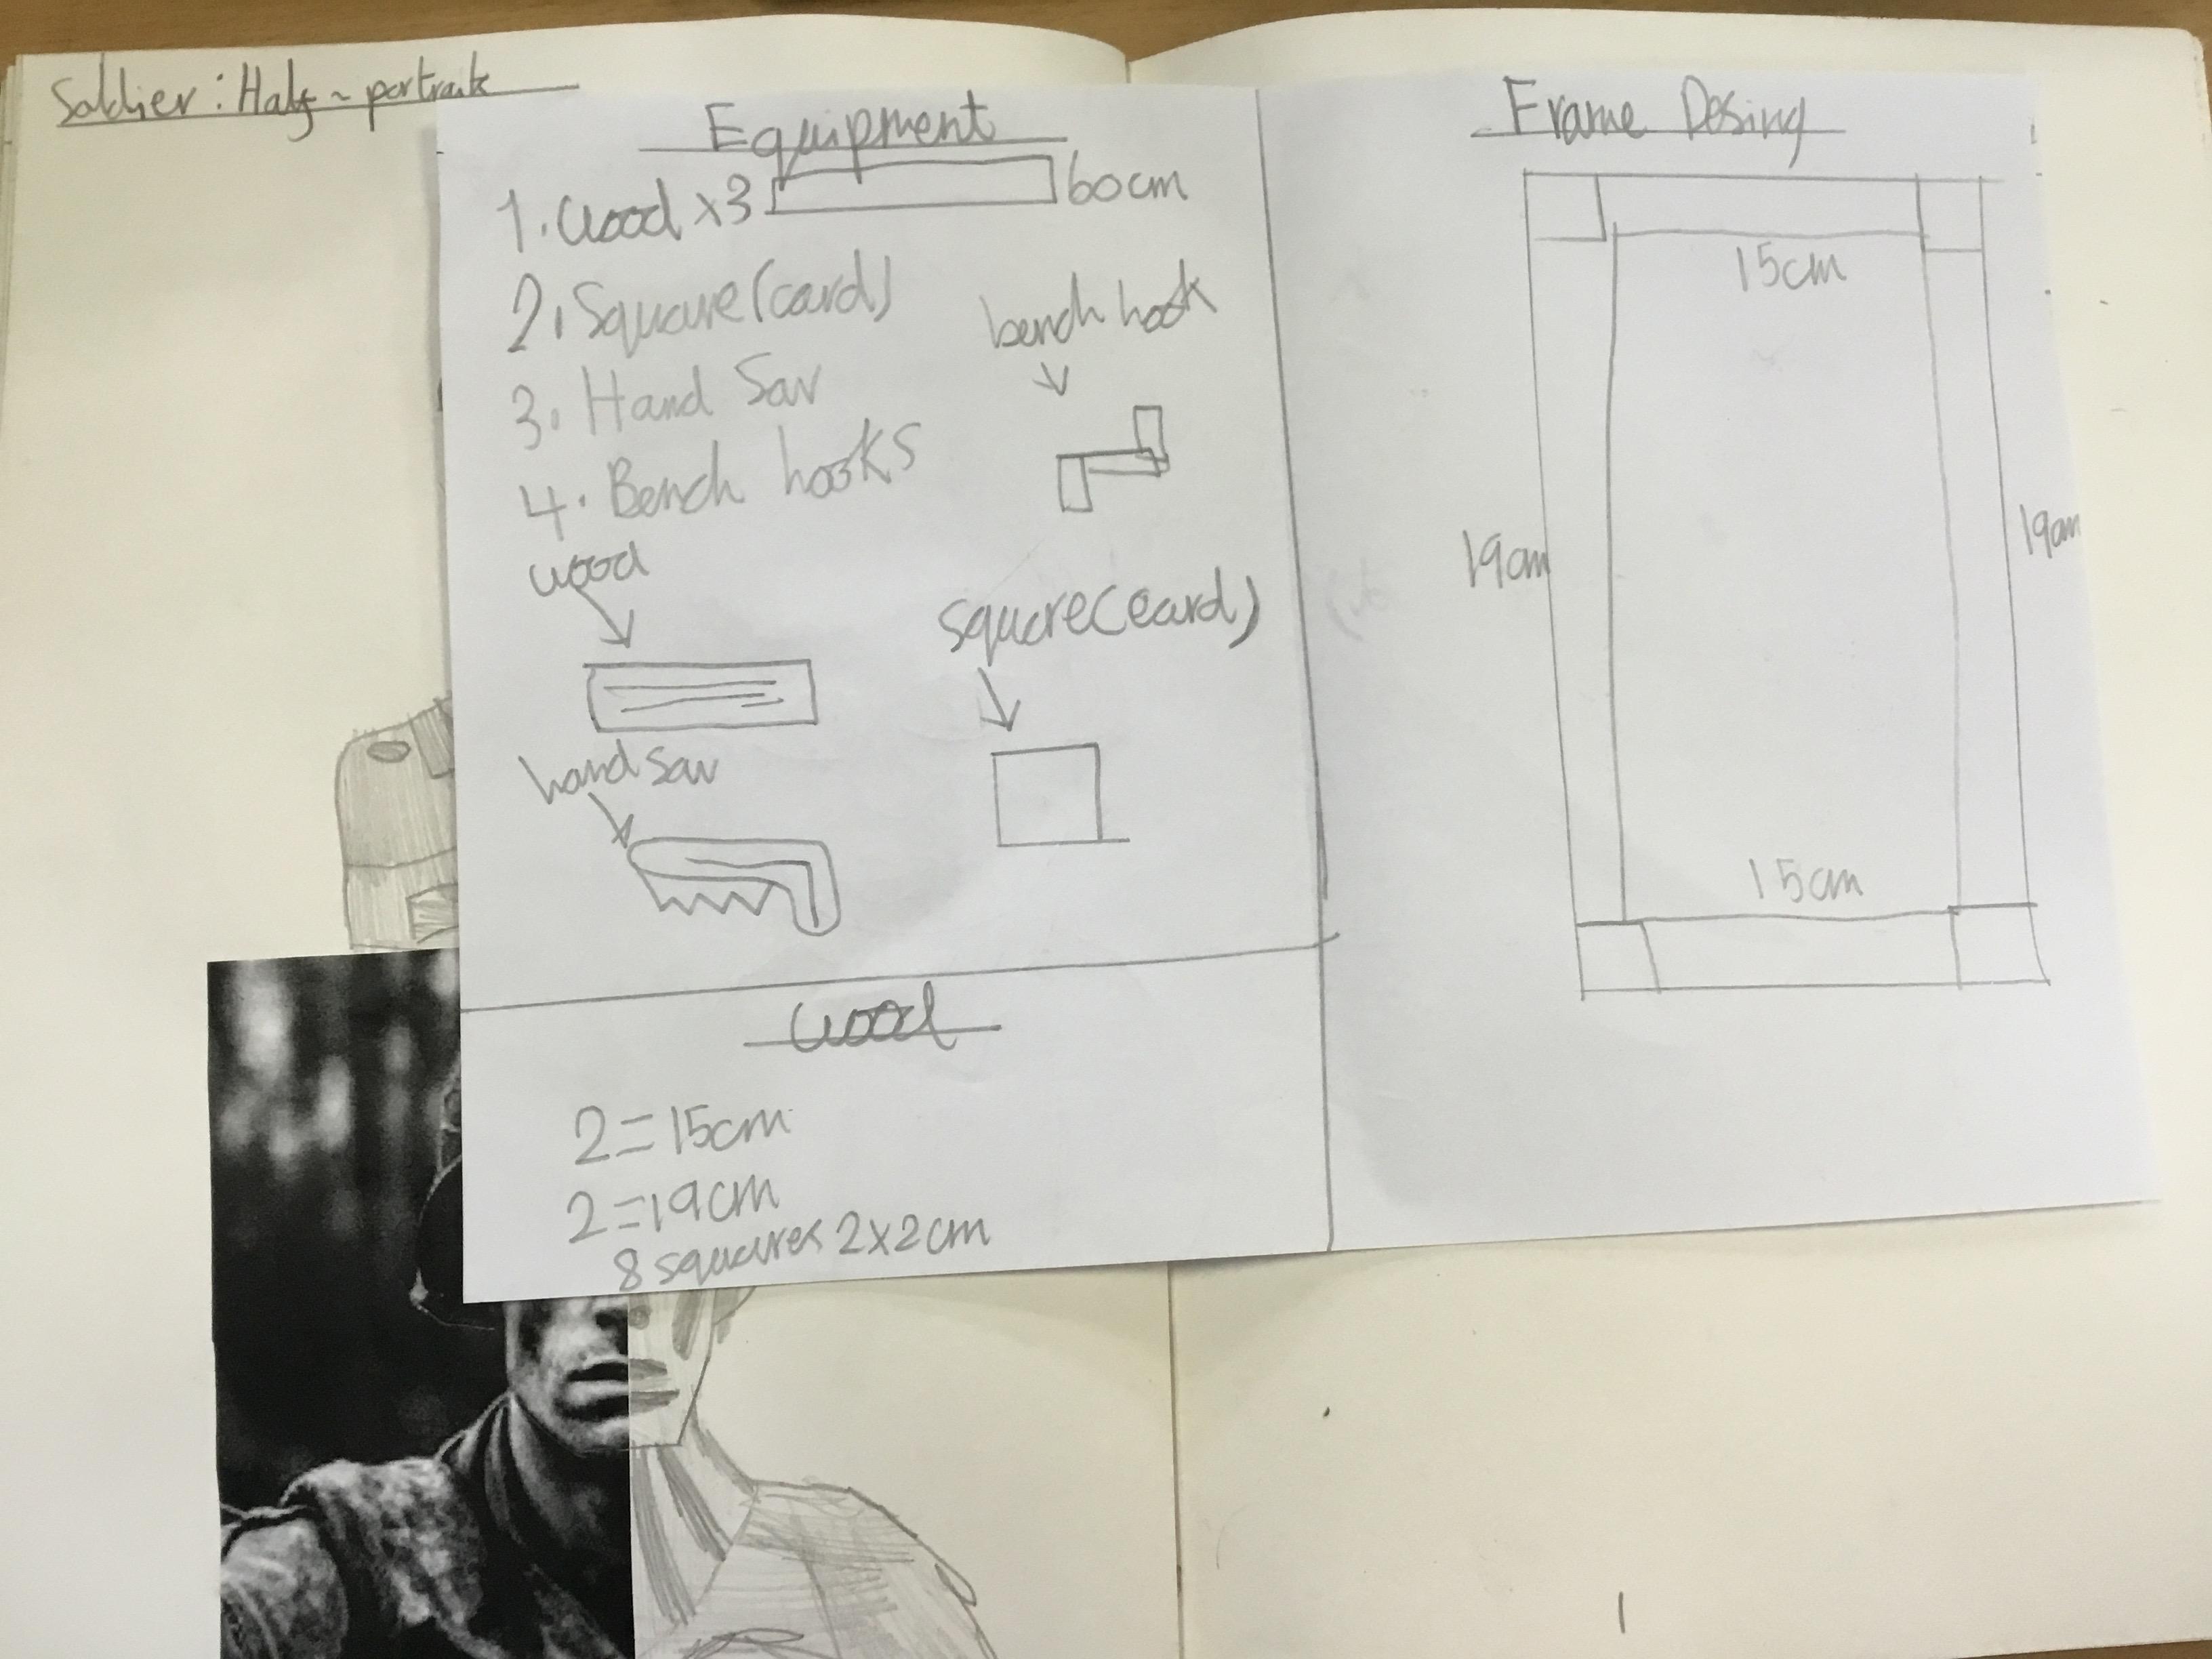 Soldier: Half-portrait
Equipment
1. Wood x3 60cm
2. Square (card)
3. Hand Sav
4. Bench hooks
bench hook
wood
square (card)
hand sav
Wood
2=15cm
2=19cm
8 squares 2x2cm
Frame Desing
15cm
19cm
19cm
15cm